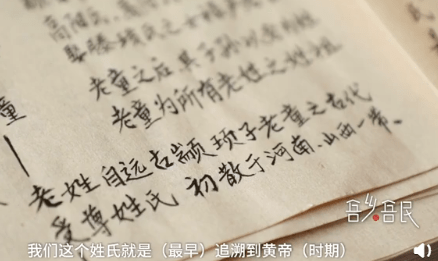 老童之后 其子孙以老为姓
老童为所有老姓之姓祖
童
老姓自远古颛顼子老童之古代
受尊姓氏 初散于河南、山西一带、
吾乡吾民
我们这个姓氏就是（最早）追溯到黄帝（时期）